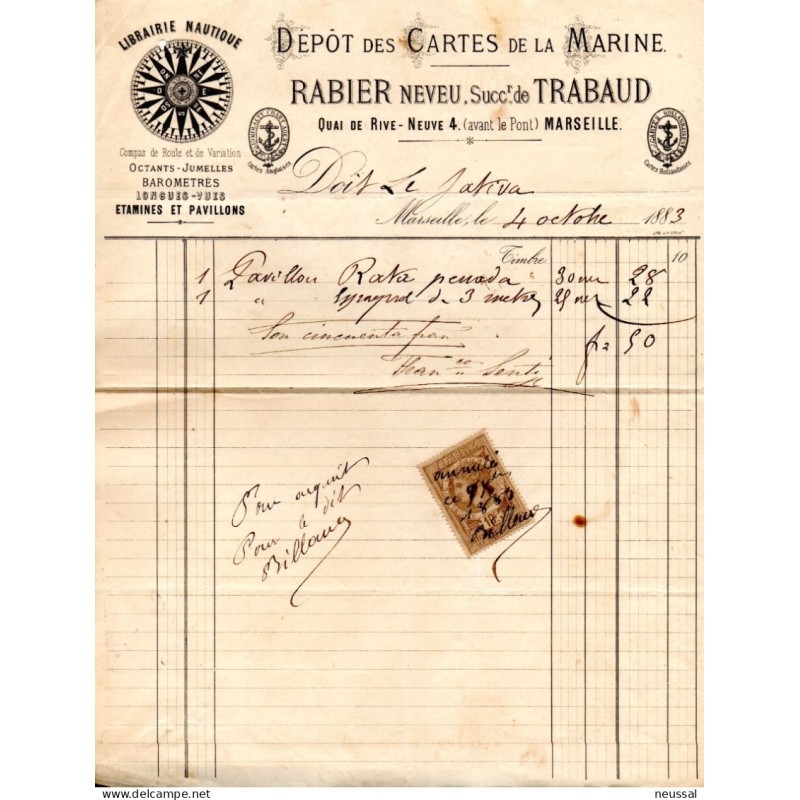 LIBRAIRIE NAUTIQUE
Compas de Route et de Variation
OCTANTS-JUMELLES
BAROMETRES
LONGUES-VUES
ETAMINES ET PAVILLONS
DÉPÔT DES CARTES DE LA MARINE.
RABIER NEVEU, Succr. de TRABAUD
QUAI DE RIVE-NEUVE 4. (avant le Pont) MARSEILLE.
Cartes Anglaises
Cartes Hollandaises
Doit Le Jativa
Marseille, le 4 octbre 1883
Timbre 10
1 Pavillon 28
1 " de 3 metres 22
Son cincuenta fran
50
Pour acquit
Pour le dit
Billaud
annulé
ce
1883
Billaud
delcampe.net
neussal